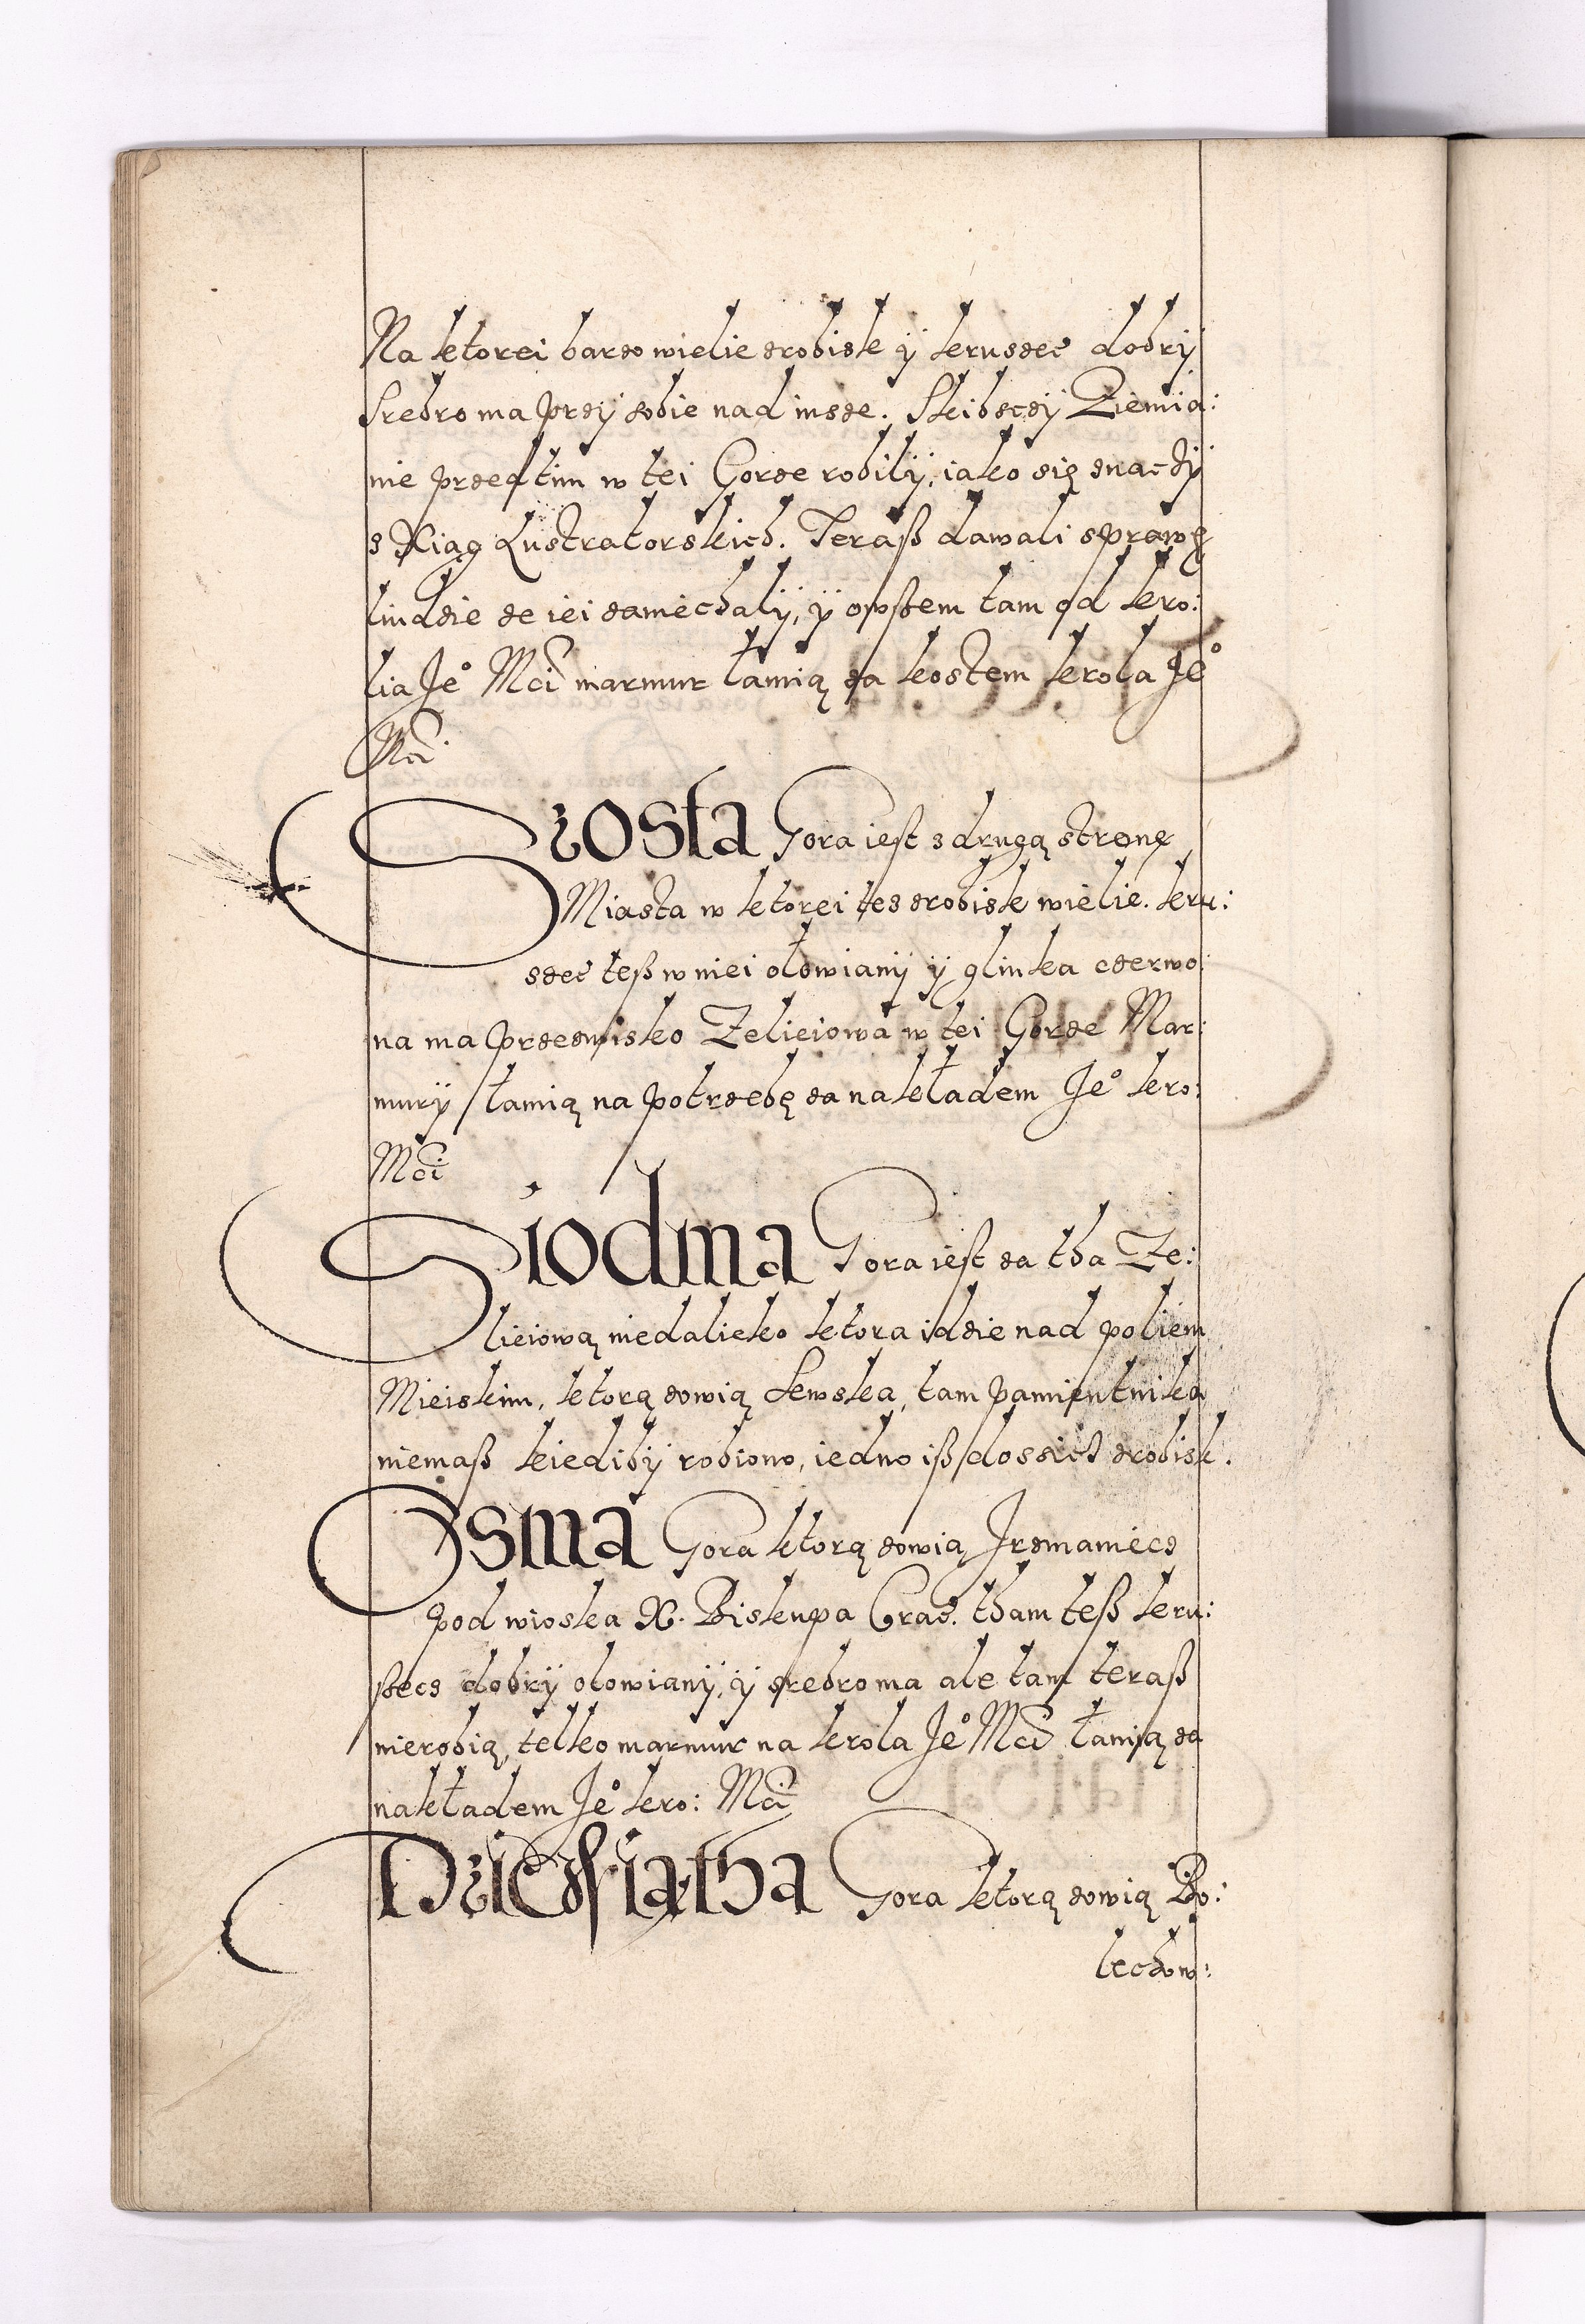 Na ktorei barzo wielie zrobisk ÿ kruszec dobrÿ
Srebro ma przÿ sobie nad insze. Skibsczÿ Ziemia:
nie przedtim w tei Gorze robilÿ, iako się znaczÿ
z Xiąg Lustratorskich. Teraß dawali sprawę
liudzie ze iei zaniechalÿ, ÿ owßem tam od kro:
lia Je⁰ Mci marmur łamią za kostem krola Je⁰
Mci
Szosta Gora iest z drugą stronę
Miasta w ktorei tez zrobisk wielie. kru:
szec teß w niei ołowianÿ ÿ glinka czerwo:
na ma przezwisko Zelieiowa w tei Gorze Mar:
murÿ łamią na potrzebę za nakładem Je⁰ kro:
Mci
Siodma Gora iest za tha Ze:
lieiową niedalieko ktora idzie nad poliem
Mieiskim, ktorą zowią Sewska, tam pamientnika
niemaß kiedibÿ robiono, iedno iß dossich zrobisk.
Osma Gora ktorą zowią Jrzmaniecz
pod wioska X. Biskupa Crac. tham teß kru:
ßecz dobrÿ olowianÿ, ÿ srebro ma ale tam teraß
nierobią, telko marmur na krola Je⁰ Mci łamią za
nakładem Je⁰ kro: Mci
Dziewiątha Gora ktorą zowią Bo:
lechow: